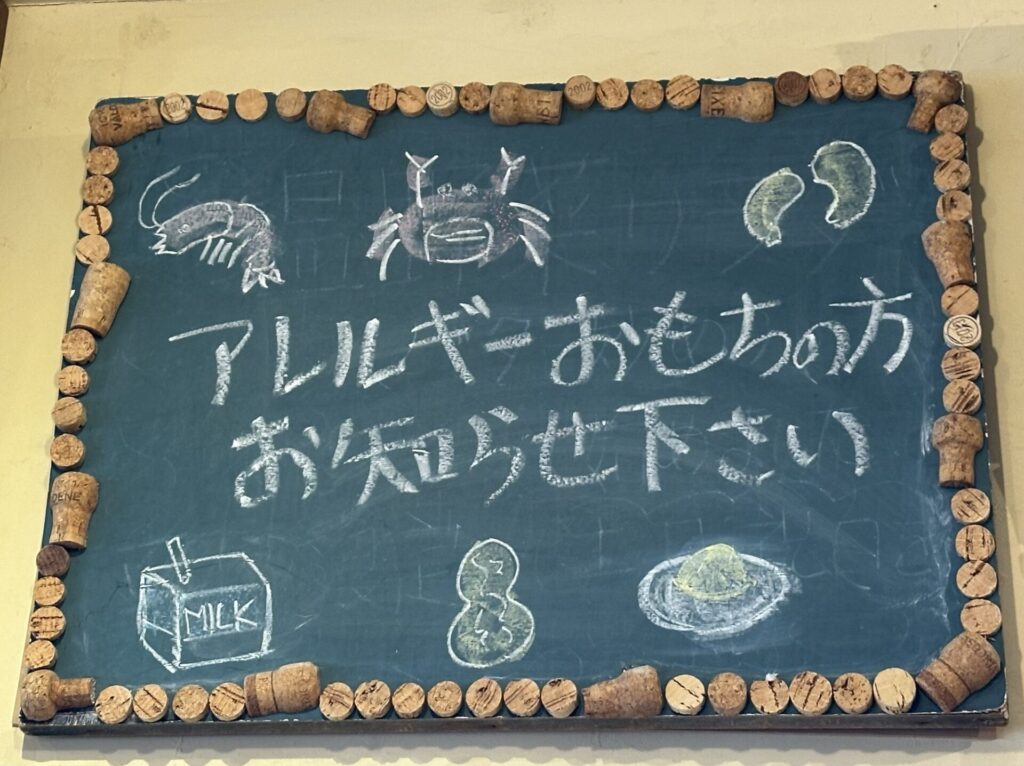 アレルギーおもちの方
お知らせ下さい
MILK